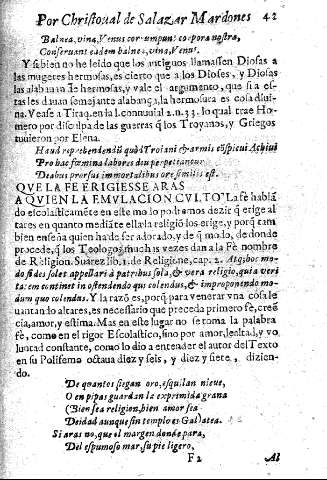 Por Christoual de Salazar Mardones 42
Balnea, vina, Venus corrumpunt corpora nostra,
Conseruant eadem balnea, vina, Venus.
Y si bien no he leido que los antiguos llamassen Diosas a
las mugeres hermosas, es cierto que a los Dioses, y Diosas
las alabauan de hermosas, y vale el argumento, que si a es-
tas les dauan semejante alabança, la hermosura es cosa diui-
na. Vease a Tiraq. en la l. connuuial 2. n. 33. lo qual trae Ho-
mero por disculpa de las guerras q̃ los Troyanos, y Griegos
tuuieron por Elena.
Haud reprehendendũ quòd Troiani & armis cõspicui Achiui
Pro hac fœmina labores diu perpetiantur
Deabus prorsus immortalibus ore similis est.
QVE LA FE ERIGIESSE ARAS
A QVIEN LA EMVLACION CVLTO La fè habiã
do escolasticamẽte en este modo podremos dezir q̃ erige al
tares en quanto mediãte ella la religiõ los erige, y porq̃ tam
bien enseña quien ha de ser adorado, y de q̃ modo, de donde
procede, q̃ los Teologos muchas vezes dan a la Fè nombre
de Religion. Suarez lib. 1. de Religione, cap. 2. Atq; hoc mo-
do fides solet appellari à patribus sola, & vera religio, quia veri
ta: em continet in ostendendo quẽ colendus, & improponendo mo-
dum quo colendus. Y la razõ es, porq̃ para venerar vna cosa le
uantando altares, es necessario que preceda primero fè, creẽ
cia, amor, y estima. Mas en este lugar no se toma la palabra
fè, como en el rigor Escolastico, sino por amor, lealtad, y vo
luntad constante, como lo dio a entender el autor del Texto
en su Polifemo octaua diez y seis, y diez y siete, dizien-
do.
De quantos siegan oro, esquilan nieue,
O en pipas guardan la exprimida grana
(Bien sea religion, bien amor sea
Deidad aunque sin templo es Galatea.
Si aras no, que el margen donde para,
Del espumoso mar, su pie ligero,
F2 Al